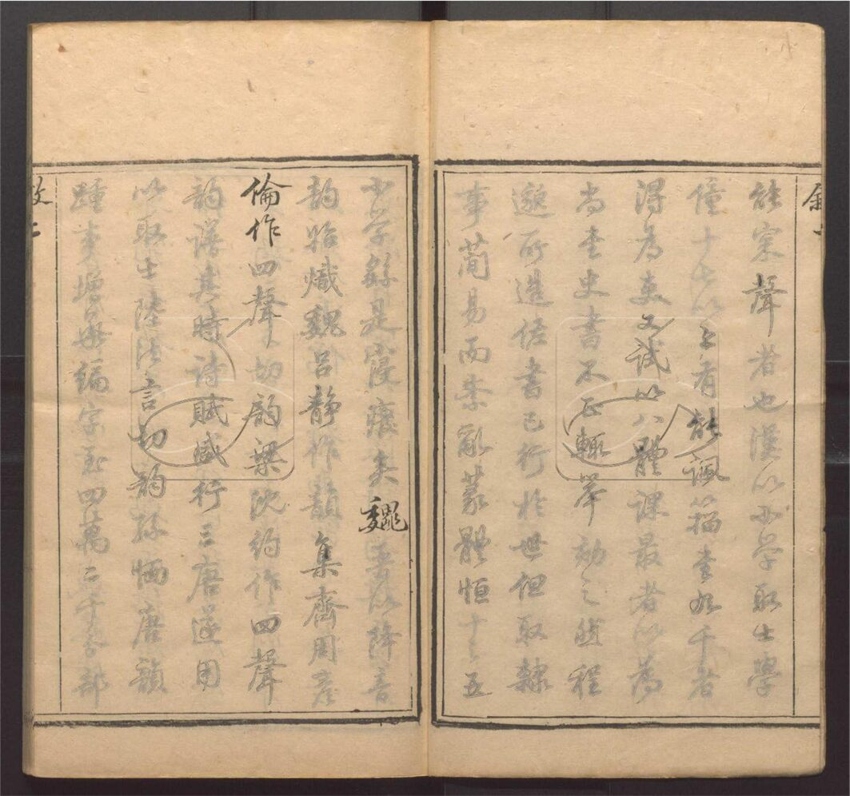 能案聲者也漢以小學取士學
僮十七以上有能諷籀書九千者
得為吏又試以八體課最者以為
尚書史書不正輒舉劾之然程
邈所造俗書已行於世但取隸
事簡易而紊亂篆體恒十之五
小學繇是寖廢矣魏晉以降言
韵始熾魏呂靜作韻集齊周彥
倫作四聲切韵梁沈約作四聲
韵譜其時詩賦盛行三唐遂用
以取士陸法言切韵孫愐唐韻
踵事增毎編字至四萬二千舍部